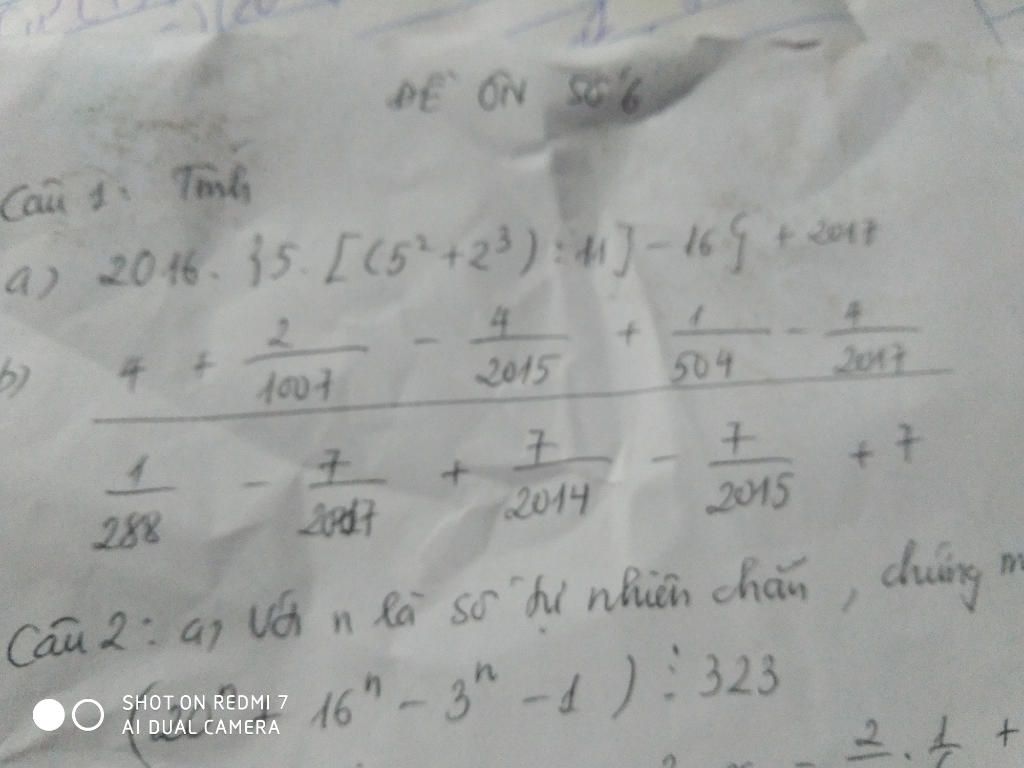 ĐỀ ÔN SỐ 6
Câu 1: Tính
a) 2016. {5. [(5² + 2³) : 11] - 16} + 2017
b) \frac{4 + \frac{2}{1007} - \frac{4}{2015} + \frac{1}{504} - \frac{4}{2017}}{\frac{1}{288} - \frac{7}{2017} + \frac{7}{2014} - \frac{7}{2015} + 7}
Câu 2: a) Với n là số tự nhiên chẵn, chứng m
(20ⁿ - 16ⁿ - 3ⁿ - 1) ⋮ 323
SHOT ON REDMI 7
AI DUAL CAMERA